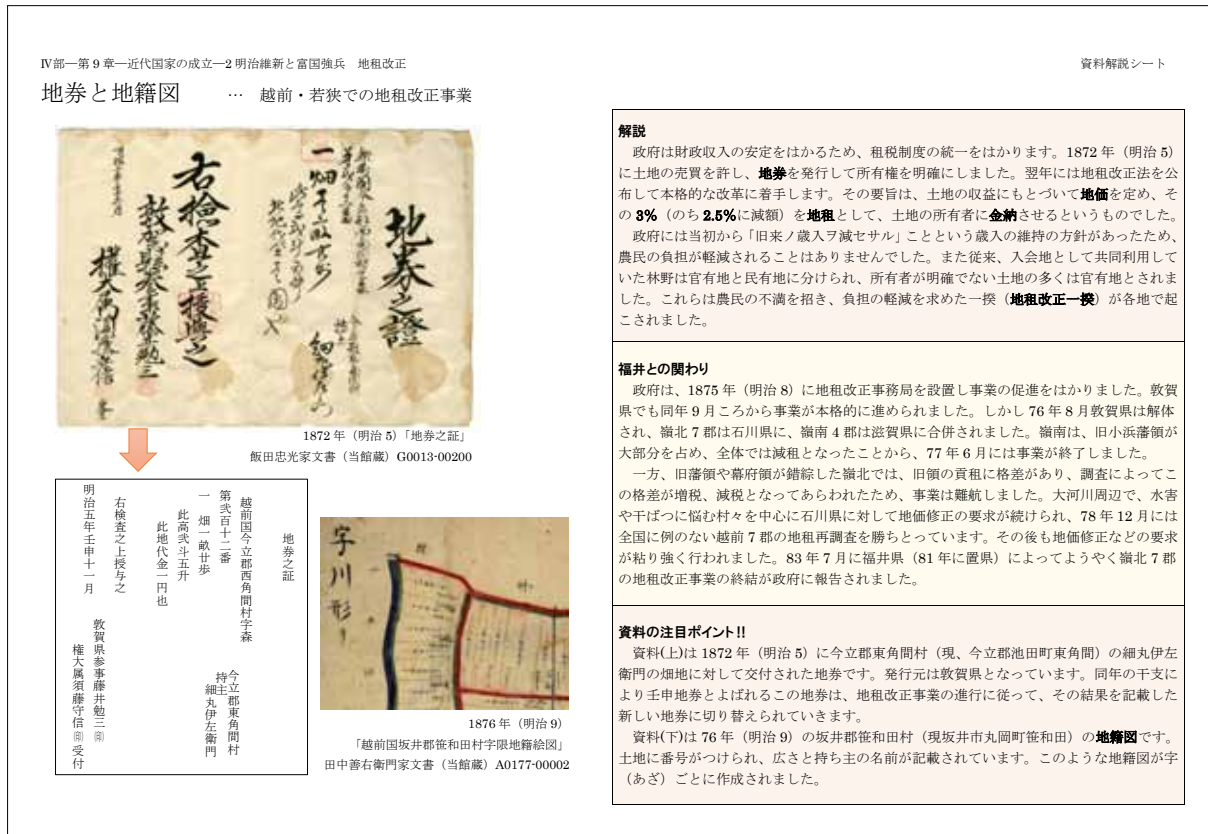 Ⅳ部―第9章―近代国家の成立―2 明治維新と富国強兵　地租改正
資料解説シート
地券と地籍図　… 越前・若狭での地租改正事業
地券之證
一畑
右検査之上授与之
1872年（明治5）「地券之証」
飯田忠光家文書（当館蔵）G0013-00200
地券之証
越前国今立郡西角間村字森
第弐百十二番
一　畑一畝廿歩
今立郡東角間村
持主　細丸伊左衛門
此高弐斗五升
此地代金一円也
右検査之上授与之
明治五年壬申十一月
敦賀県参事藤井勉三㊞
権大属須藤守信㊞受付
字川形り
1876年（明治9）
「越前国坂井郡笹和田村字限地籍絵図」
田中善右衛門家文書（当館蔵）A0177-00002
解説
政府は財政収入の安定をはかるため、租税制度の統一をはかります。1872年（明治5）
に土地の売買を許し、地券を発行して所有権を明確にしました。翌年には地租改正法を公
布して本格的な改革に着手します。その要旨は、土地の収益にもとづいて地価を定め、そ
の3%（のち2.5%に減額）を地租として、土地の所有者に金納させるというものでした。
政府には当初から「旧来ノ歳入ヲ減セサル」ことという歳入の維持の方針があったため、
農民の負担が軽減されることはありませんでした。また従来、入会地として共同利用して
いた林野は官有地と民有地に分けられ、所有者が明確でない土地の多くは官有地とされま
した。これらは農民の不満を招き、負担の軽減を求めた一揆（地租改正一揆）が各地で起
こされました。
福井との関わり
政府は、1875年（明治8）に地租改正事務局を設置し事業の促進をはかりました。敦賀
県でも同年9月ころから事業が本格的に進められました。しかし76年8月敦賀県は解体
され、嶺北7郡は石川県に、嶺南4郡は滋賀県に合併されました。嶺南は、旧小浜藩領が
大部分を占め、全体では減租となったことから、77年6月には事業が終了しました。
一方、旧藩領や幕府領が錯綜した嶺北では、旧領の貢租に格差があり、調査によってこ
の格差が増税、減税となってあらわれたため、事業は難航しました。大河川周辺で、水害
や干ばつに悩む村々を中心に石川県に対して地価修正の要求が続けられ、78年12月には
全国に例のない越前7郡の地租再調査を勝ちとっています。その後も地価修正などの要求
が粘り強く行われました。83年7月に福井県（81年に置県）によってようやく嶺北7郡
の地租改正事業の終結が政府に報告されました。
資料の注目ポイント!!
資料(上)は1872年（明治5）に今立郡東角間村（現、今立郡池田町東角間）の細丸伊左
衛門の畑地に対して交付された地券です。発行元は敦賀県となっています。同年の干支に
より壬申地券とよばれるこの地券は、地租改正事業の進行に従って、その結果を記載した
新しい地券に切り替えられていきます。
資料(下)は76年（明治9）の坂井郡笹和田村（現坂井市丸岡町笹和田）の地籍図です。
土地に番号がつけられ、広さと持ち主の名前が記載されています。このような地籍図が字
（あざ）ごとに作成されました。